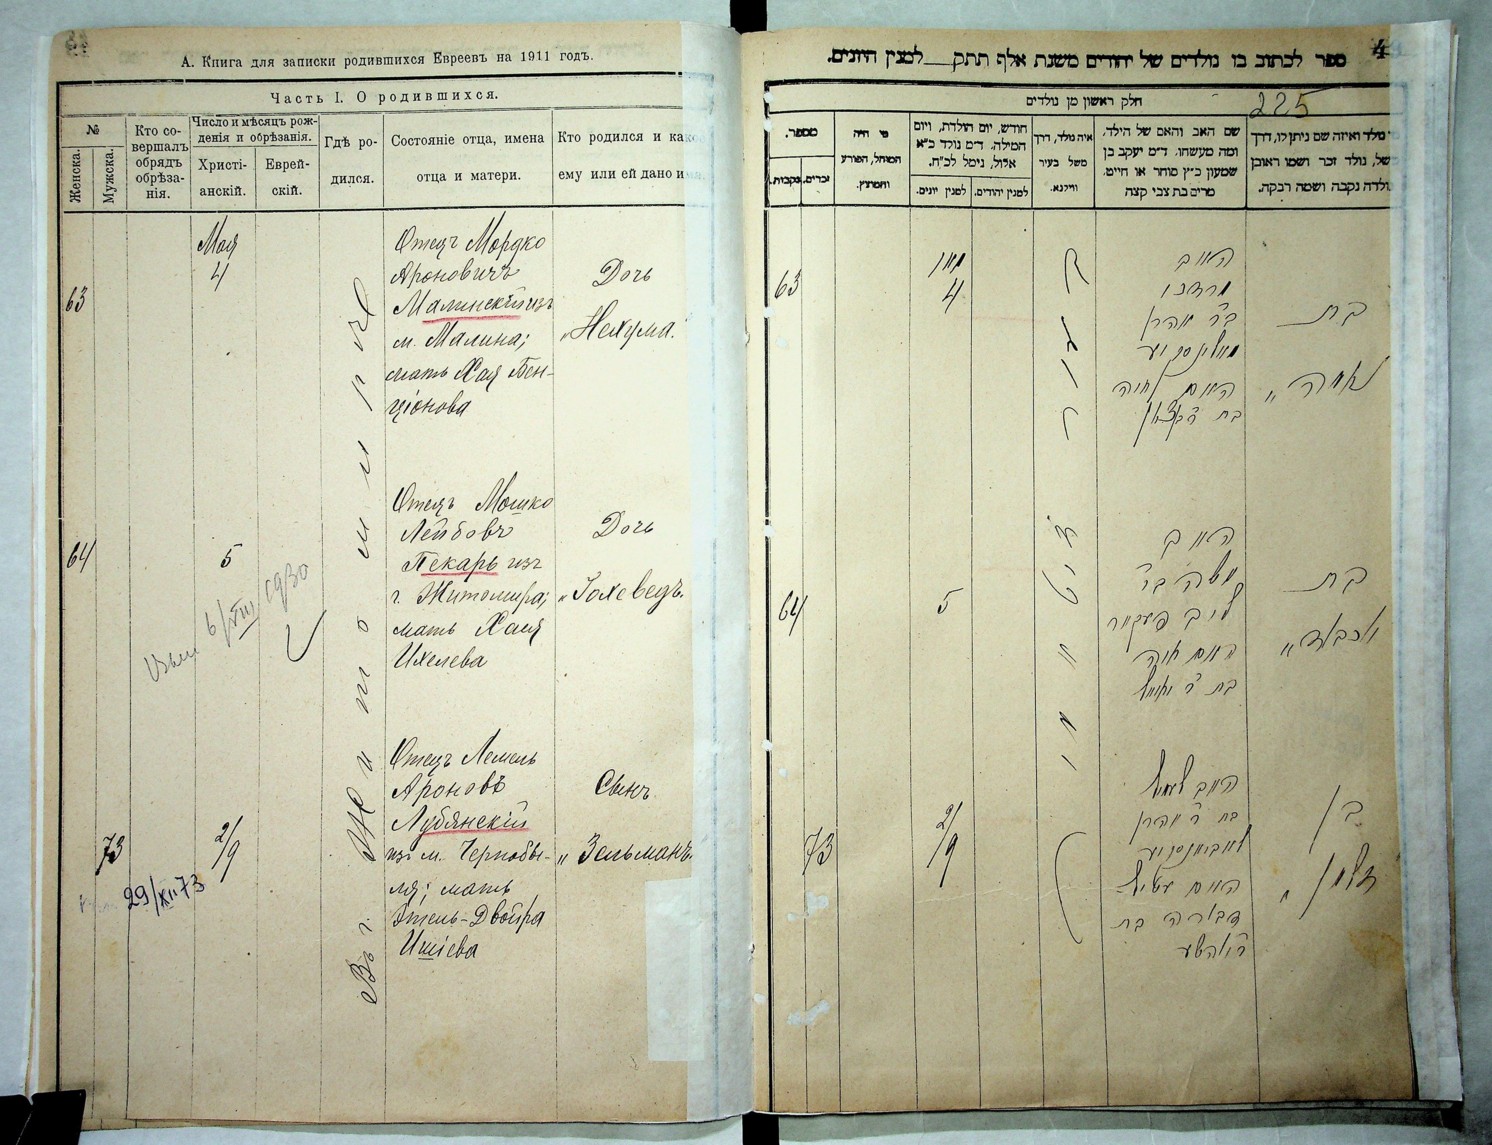 А. Книга для записки родившихся Евреевъ на 1911 годъ.
Часть I. О родившихся.
№
Женска.
Мужска.
Кто со-
вершалъ
обрядъ
обрѣза-
нія.
Число и мѣсяцъ рож-
денія и обрѣзанія.
Христі-
анскій.
Еврей-
скій.
Гдѣ ро-
дился.
Состояніе отца, имена
отца и матери.
Кто родился и
ему или ей дано
63
Мая
4
Отецъ Мордко
Ароновичъ
Малинскій изъ
м. Малина;
мать Хая Бен-
ціонова
Дочь
„Нехума.
64
5
Отецъ Мошко
Лейбовъ
Пекарь изъ
г. Житомира;
мать Хася
Ихелева
Дочь
„Іохеведъ.
6/VIII 1930
73
2/9
29/XII 73
Отецъ Лемель
Ароновъ
Лубянскій
изъ м. Чернобы-
ля; мать
Этель-Двойра
Ишіева
Сынъ
„Зельманъ.
Въ г. Житомирѣ
4
ספר לכתוב בו נולדים של יהודים משנת אלף תתק למנין היונים.
חלק ראשון מן נולדים
225
מספר.
נקבות.
זכרים.
מי היה
המוהל, הפורע
והמוצץ.
חודש, יום הולדת, ויום
המילה, ד״מ נולד כ״א
אלול, נימל לכ״ח.
למנין יונים.
למנין יהודים.
איה נולד, דרך
משל בעיר
ווילנא.
שם האב והאם של הילד,
ומה מעשהו, ד״מ יעקב בן
שמעון כ״ץ סוחר או חייט,
מרים בת צבי קצה
נולד ואיזה שם ניתן לו, דרך
משל, נולד זכר ושמו ראובן
נולדה נקבה ושמה רבקה.
63
מאי
4
האב
מרדכו
ב״ר אהרן
מאלינסקי
האם חיה
בת בנציאן
בת
„נחמה
64
5
האב
משה ב״ר
ליב פעקער
האם חסיה
בת
בת
„יוכבד
73
2/9
האב למיל
אהרן
האם עטיל
דבורה בת
בן
„זלמן
זיטאמיר